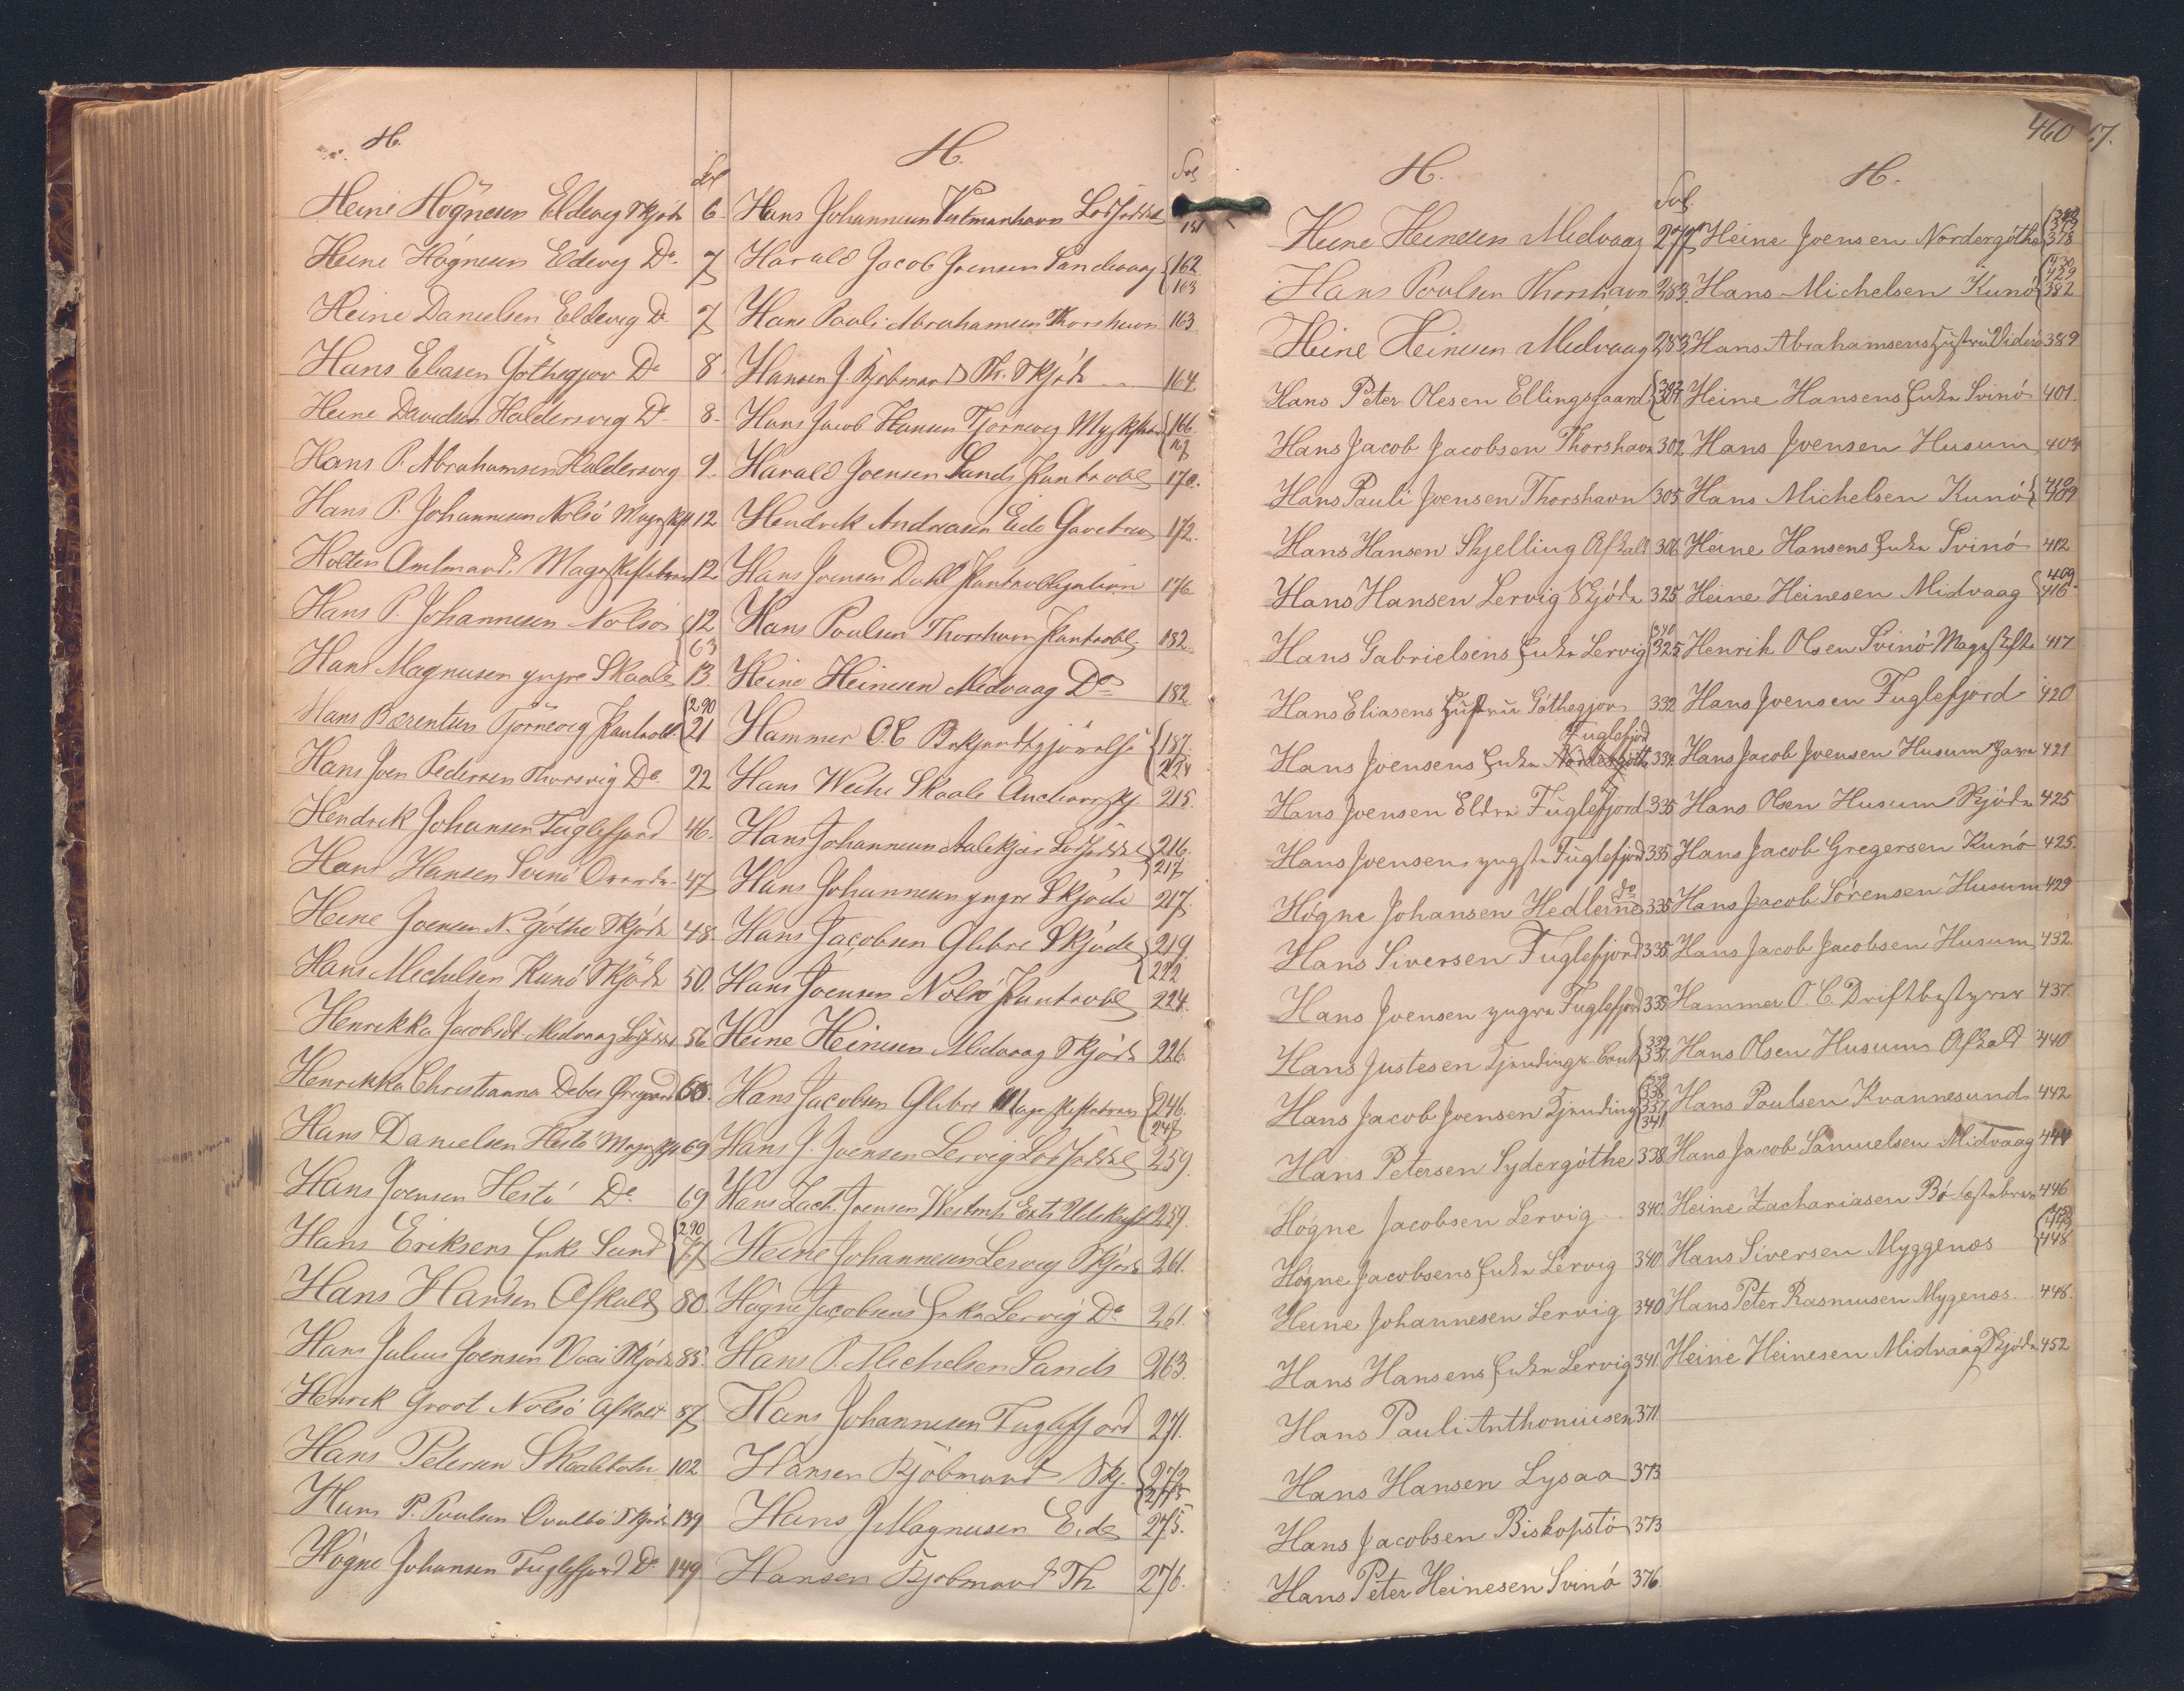 H.
Fol
Heine Högnesen Eldevig Skjöde 6
Heine Högnesen Eldevig Do 7
Heine Danielsen Eldevig Do 7
Hans Eliasen Göthegjov Do 8
Heine Davidsen Haldersvig Do 8
Hans P. Abrahamsen Haldersvig 9
Hans P. Johannesen Nolsö Magesk. 12
Holten Amtmand, Mageskiftebrev 12
Hans P. Johannesen Nolsö 12
63
Hans Magnusen yngre Skaale 13
290
Hans Berentsen Tjörnevig Pantobl. 21
Hans Joen Pedersen Thorsvig Do 22
Hendrik Johansen Fuglefjord 46
Hans Hansen Svinö 47
Heine Joensen N. Göthe Skjöde 48
Hans Michelsen Kunö Skjöde 50
Henrikka Jacobsdt. Midvaag 56
Henrikka Christianna Debes 60
Hans Danielsen Hestö Magesk. 69
Hans Joensen Hestö Do 69
290
Hans Eriksens Enke Sand 77
Hans Hansen Afkald 80
Hans Julius Joensen Vaai Skjöde 85
Henrik Groot Nolsö Afkald 87
Hans Petersen Skaaletofte 102
Hans P. Poulsen Qvalbö Skjöde 139
Högne Johansen Fuglefjord Do 149
H.
Fol
Hans Johannesen Vestmanhavn 151
Harald Jacob Joensen Sandevaag 162
163
Hans Pauli Abrahamsen Thorshavn 163
Hansen J. Kjöbmand Th. Skjöde 164
Hans Jacob Hansen Tjörnevig 166
167
Harald Joensen Sands Pantobl 170.
Hendrik Andreasen Eide Gavebrev 172.
Hans Joensen Dahl Pantobligation 176
Hans Poulsen Thorshavn Pantobl. 182
Heine Heinesen Midvaag Do 182
Hammer O.C. Bekjendtgjörelse 187
224
Hans Weihe Skaale 215.
Hans Johannesen 216.
217
Hans Johannesen yngre Skjöde 217
Hans Jacobsen Glibre Skjöde 219
222
Hans Joensen Nolsö Pantobl 224.
Heine Heinesen Midvaag Skjöde 226
Hans Jacobsen Glibre Mageskiftebrev 246
247
Hans J. Joensen Lervig 259.
Hans Zach. Joensen Vestmh. 259.
Heine Johannesen Lervig Skjöde 261.
Högne Jacobsens Enke Lervig Do 261.
Hans P. Michelsen Sands 263.
Hans Johannesen Fuglefjord 271.
Hansen Kjöbmand Skj. 272
275
Hans J. Magnusen Eide 275.
Hansen Kjobmand Th 276.
460
17.
H.
Fol.
Heine Heinesen Midvaag 277
Hans Poulsen Thorshavn 283.
Heine Heinesen Midvaag 283
Hans Peter Olesen Ellingsgaard 304
Hans Jacob Jacobsen Thorshavn 302
Hans Pauli Joensen Thorshavn 305
Hans Hansen Skjelling Afkald 306
Hans Hansen Lervig Skjöde 325
340
Hans Gabrielsens Enke Lervig 325
Hans Eliasens Hustru Göthegjov 332
Fuglefjord
Hans Joensens Enke Nordregöthe 334
Hans Joensen Eldre Fuglefjord 335
Hans Joensen yngste Fuglefjord 335
Högne Johansen Hedlerne do 335
Hans Siversen Fuglefjord 335
Hans Joensen yngre Fuglefjord 335
339
Hans Justesen 337
339
338
Hans Jacob Joensen Tjending 337
341
Hans Petersen Sydergöthe 338
Högne Jacobsen Lervig 340
Högne Jacobsens Enke Lervig 340
Heine Johannesen Lervig 340
Hans Hansens Enke Lervig 341
Hans Pauli Anthoniusen 371
Hans Hansen Lysaa 373
Hans Jacobsen Biskopstö 373
Hans Peter Heinesen Svinö 376
H.
Heine Joensen Nordergöthe 378
430
429
Hans Michelsen Kunö 382
Hans Abrahamsens Hustru Viderö 389
Heine Hansens Enke Svinö 401.
Hans Joensen Husum 404
Hans Michelsen Kunö 409
Heine Hansens Enke Svinö 412
409
Heine Heinesen Midvaag 416
Henrik Olsen Svinö Magesk. 417
Hans Joensen Fuglefjord 420
Hans Jacob Joensen Husum 421
Hans Olsen Husum Skjöde 425
Hans Jacob Gregersen Kunö 425.
Hans Jacob Sörensen Husum 429
Hans Jacob Jacobsen Husum 432.
Hammer O.C. Driftbestyrer 437.
Hans Olsen Husum Afkald 440
Hans Poulsen Kvannesund 442
Hans Jacob Samuelsen Midvaag 444
Heine Zachariasen Bö 446
Hans Siversen Myggenæs 448
Hans Peter Rasmusen Mygenæs 448.
Heine Heinesen Midvaag Skjöde 452